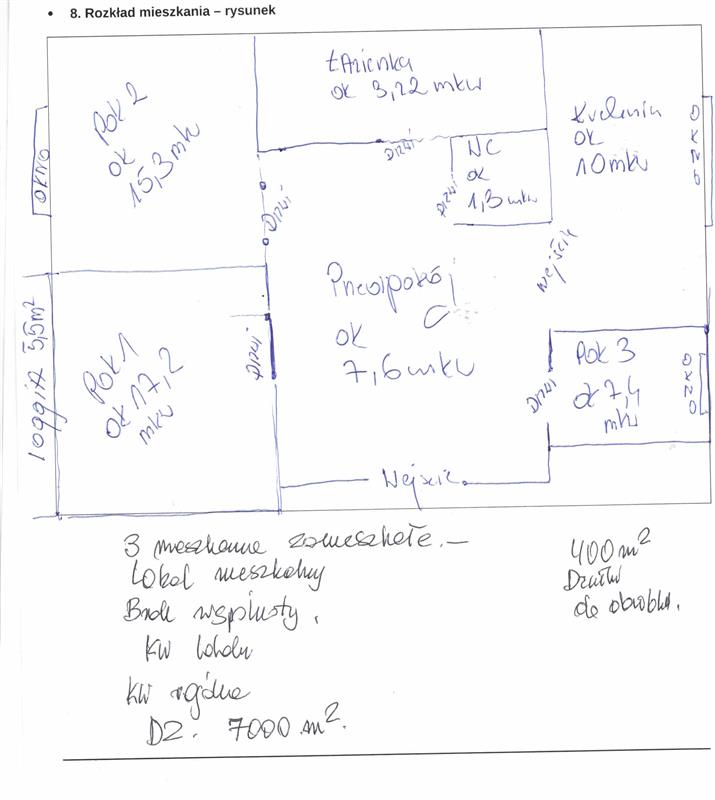 • 8. Rozkład mieszkania – rysunek
Pok 2
ok
15,3 mk
OKNO
łazienka
ok 3,22 mkw
Kuchnia
ok
10 mkw
OKNO
DRZWI
WC
ok
1,3 mkw
DRZWI
DRZWI
Wejście
Przedpokój
ok
7,6 mkw
loggia 5,5m²
Pok 1
ok 17,2
mkw
DRZWI
Pok 3
ok 7,4
mkw
OKNO
DRZWI
Wejście
3 mieszkania zamieszkałe. —
Lokal mieszkalny
Brak wspólnoty.
KW lokalu
KW ogólna
DZ. 7000 m².
400 m²
Działki
do obrobku.